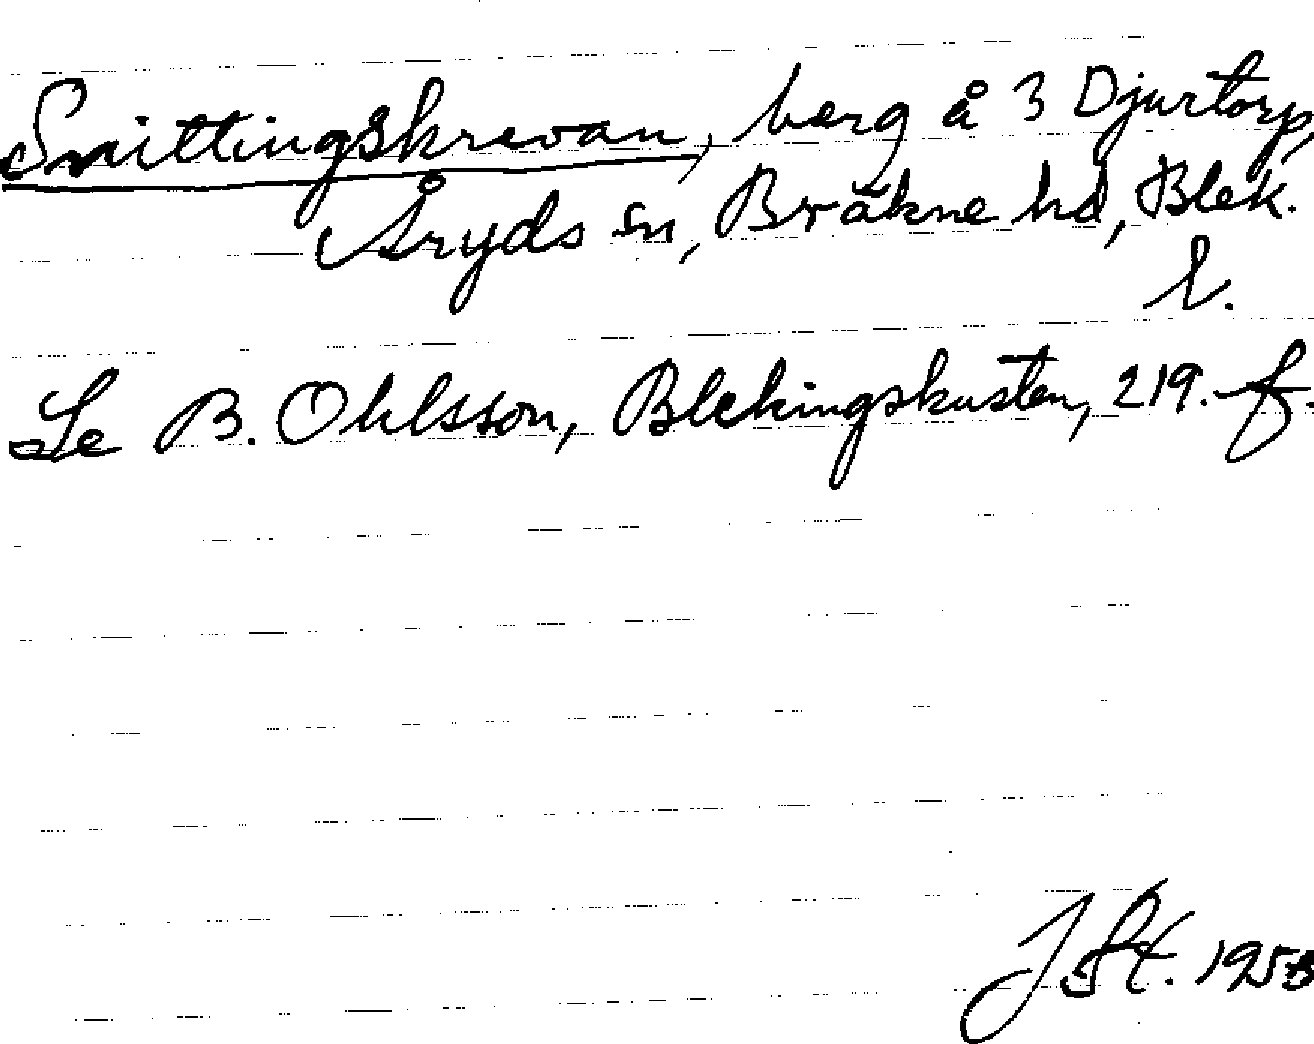 Snittingskrevan, berg å 3 Djurtorp,
Åryds sn, Bräkne hd, Blek.
l.
Se B. Ohlsson, Blekingskusten, 219. f.
J St.